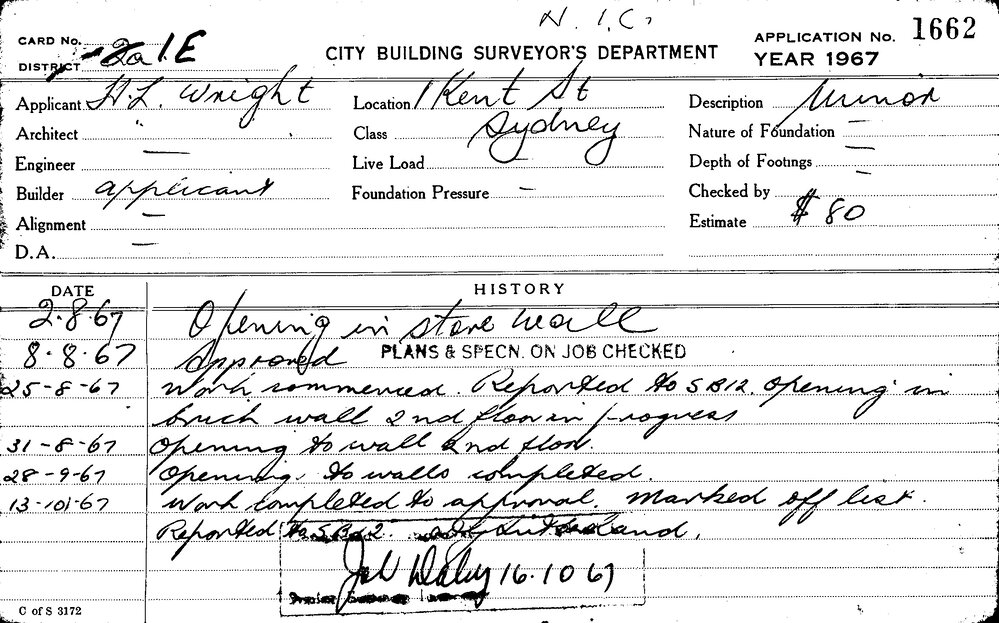 N.I.C.
CARD No.
DISTRICT 2a 1E
CITY BUILDING SURVEYOR'S DEPARTMENT
APPLICATION No. 1662
YEAR 1967
Applicant H.L. Wright
Location 1 Kent St
Sydney
Description Minor
Architect "
Class
Nature of Foundation —
Engineer —
Live Load
Depth of Footings —
Builder applicant
Foundation Pressure —
Checked by —
Alignment —
Estimate $80
D.A. —
DATE HISTORY
2.8.67 Opening in store wall
8.8.67 Approved PLANS & SPECN. ON JOB CHECKED
25-8-67 Work commenced. Reported to SB12. Opening in
brick wall 2nd floor in progress
31-8-67 Opening to wall 2nd floor.
28-9-67 Opening to walls completed.
13-10-67 Work completed to approval. Marked off list.
Reported to SB12.
16.10.67
C of S 3172